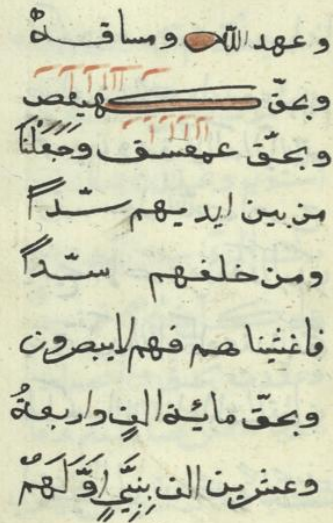 وعهد الله ومساقة
وبحقّ كهيعص
وبحقّ عمعسق وَجَعَلْنَا
من بين ايديهم سدّاً
ومن خلفهم سدّاً
فاغشيناهم فهم لا يبصرون
وبحقّ مائة الف واربعةُ
وعشرين الف بِنبَّيٍ اَوَّلَهُمْ